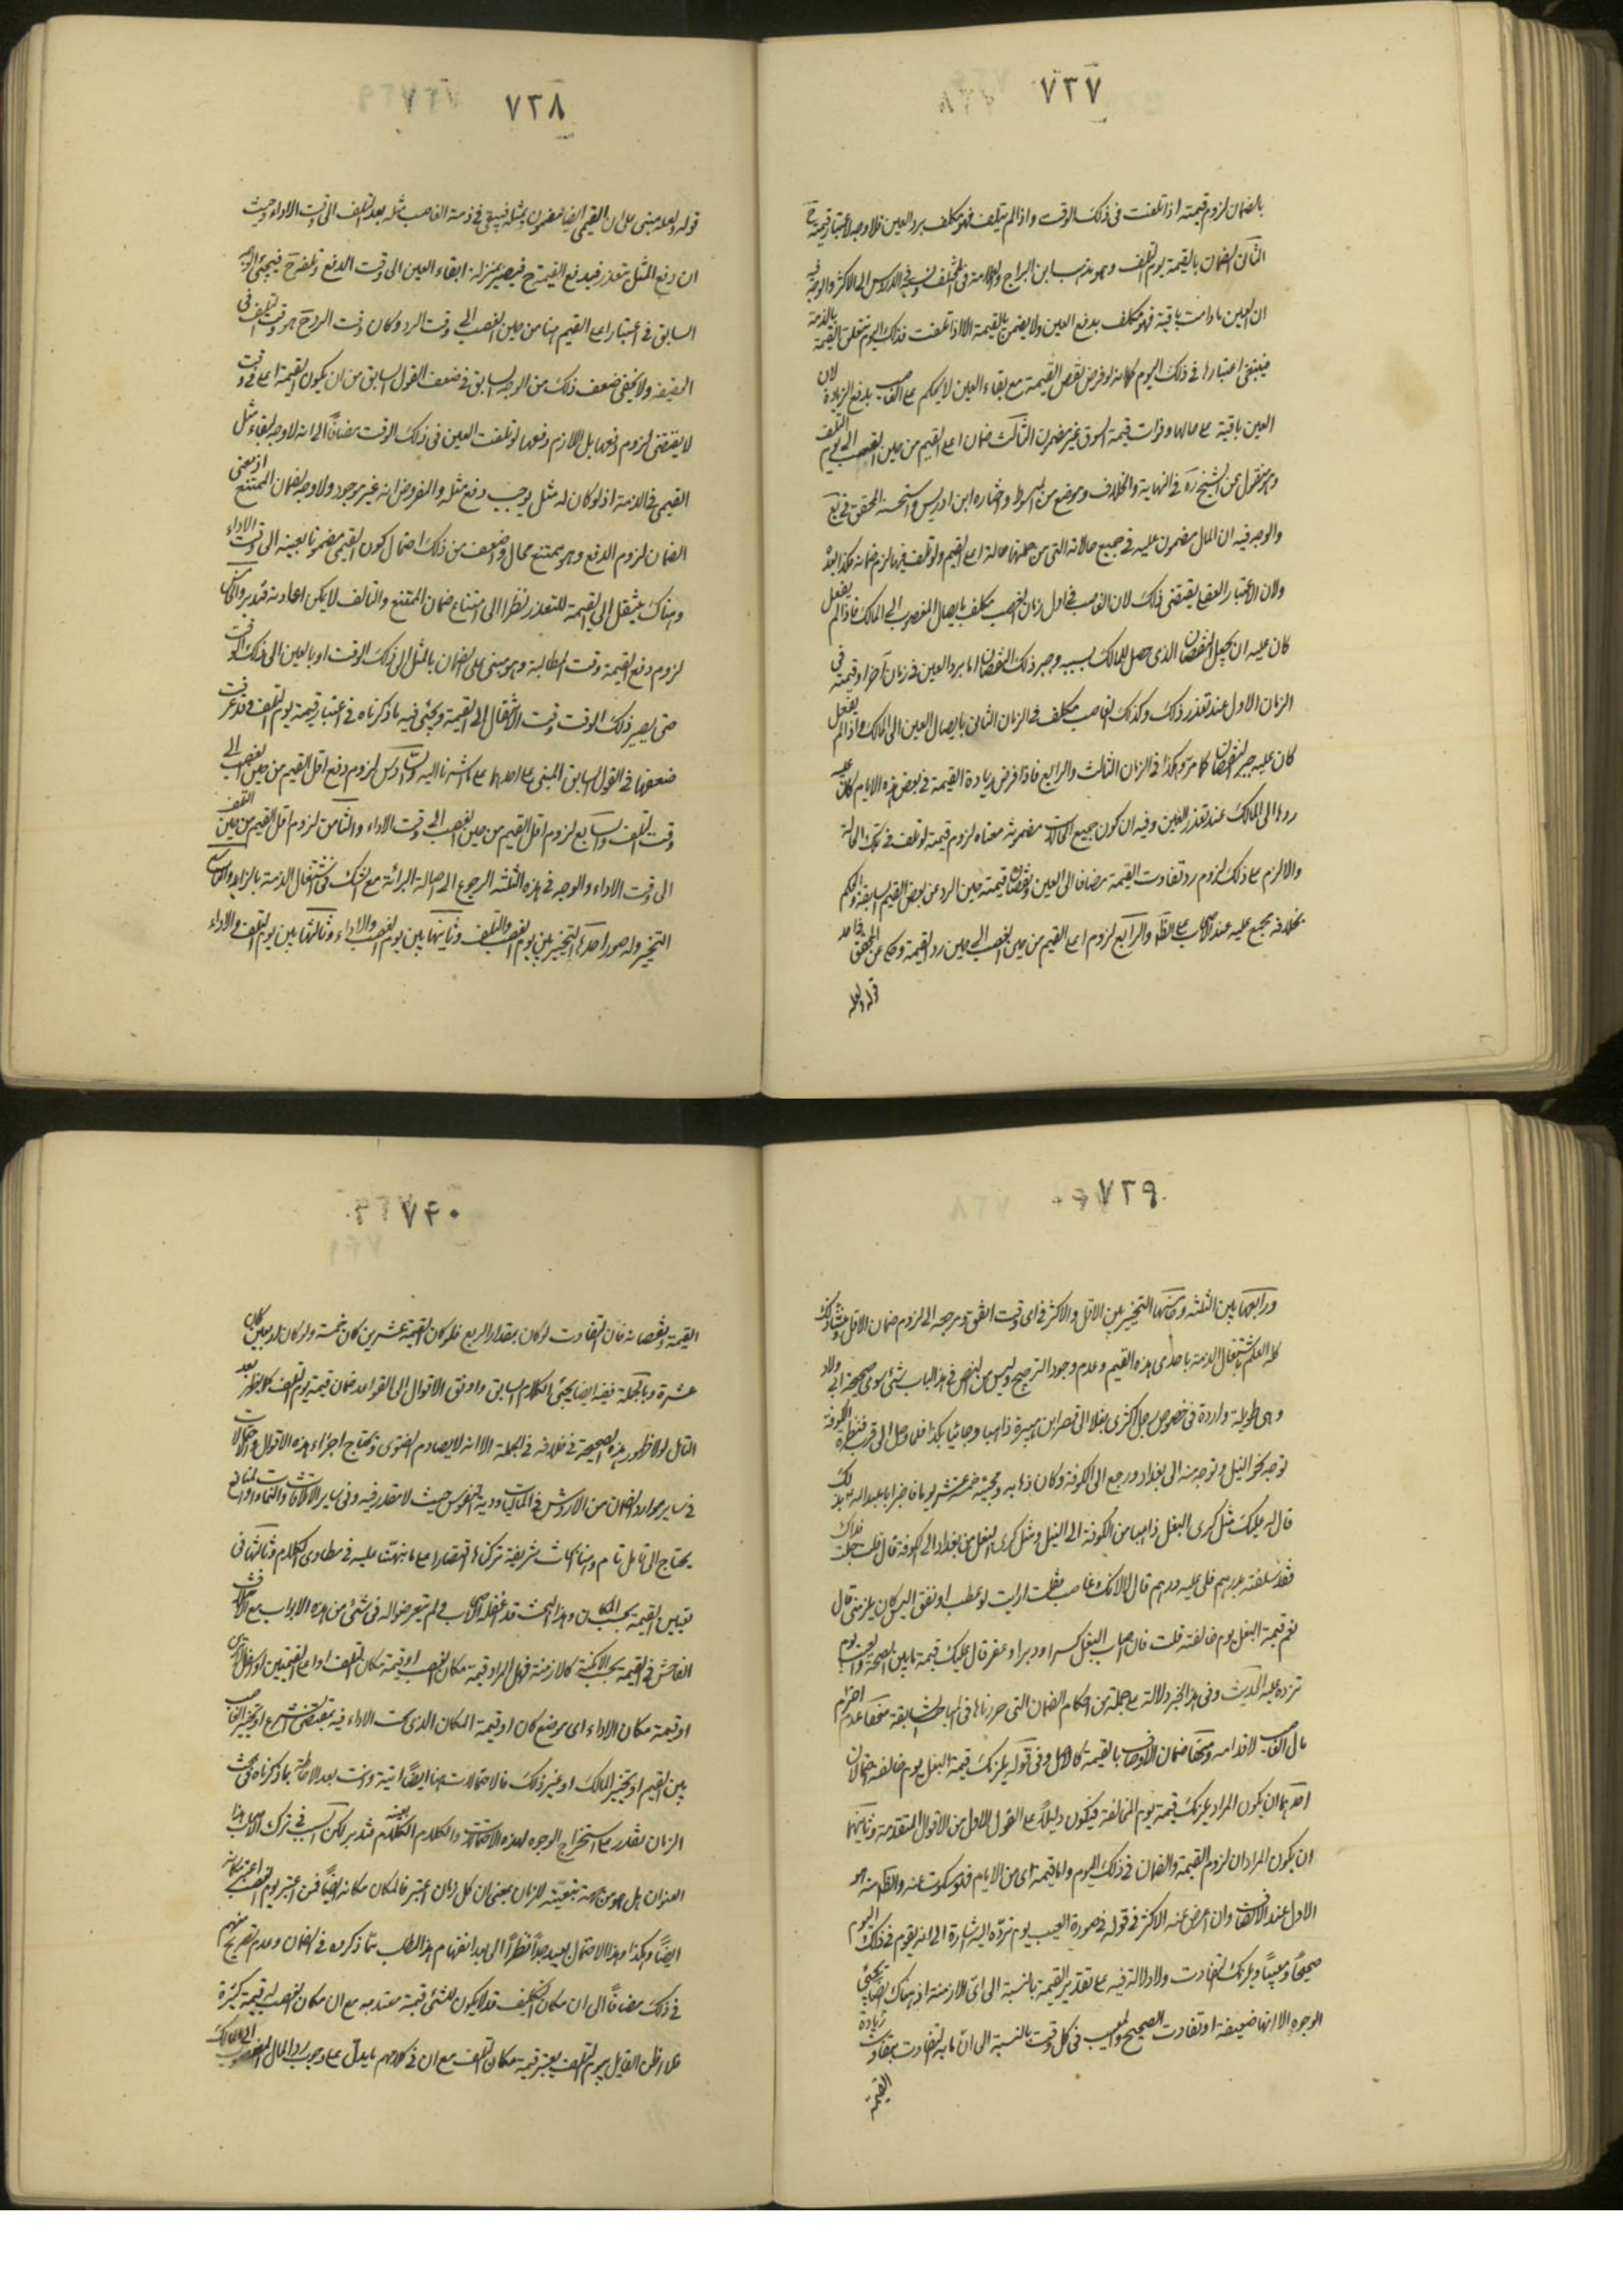 ٧٣٧
بالضمان لزوم قيمته اذا تلفت فى ذلك الوقت واذا لم يتلف فهو مكلف برد العين فلا وجه لاعتبار قيمته ح
الثانى الضمان بالقيمة يوم التلف وهو مذهب ابن البراج والعلامة فى المختلف ونسبه فى الدروس الى الاكثر والوجه فيه
ان العين مادامت باقية فهو مكلف بدفع العين ولا يضمن بالقيمة الا اذا تلفت فذلك اليوم تتعلق القيمة بالذمة
فينبغى اعتبارها فى ذلك اليوم كما انه لو فرض نقص القيمة مع بقاء العين لا يحكم على الغاصب بدفع الزيادة لان
العين باقية على حالها وفوات قيمة السوق غير مضمون الثالث ضمان اعلى القيم من حين الغصب الى يوم التلف
وهو منقول عن الشيخ ره فى النهاية والخلاف وموضع من المبسوط واختاره ابن ادريس واستحسنه المحقق فى يع
والوجه فيه ان المال مضمون عليه فى جميع حالاته التى من جملتها حالة اعلى القيم ولو تلف فيها لزم ضمانه فكذا بعده
ولان الاعتبار العقلى يقتضى ذلك لان الغاصب فى اول زمان الغصب مكلف بايصال المغصوب الى المالك فاذا لم يفعل
كان عليه ان يجبر النقصان الذى حصل للمالك بسببه وجبر ذلك النقصان اما برد العين فى زمان آخر او قيمته فى
الزمان الاول عند تعذر ذلك وكذلك الغاصب مكلف فى الزمان الثانى بايصال العين الى المالك واذا لم يفعل
كان عليه جبر النقصان كما مر وهكذا فى الزمان الثالث والرابع فاذا فرض زيادة القيمة فى بعض هذه الايام كان عليه
ردها الى المالك عند تعذر العين وفيه ان كون جميع الحالات مضمونة معناه لزوم قيمته لو تلف فى تلك الحالة
والا لزم على ذلك لزوم رد تفاوت القيمة مضافا الى العين ونقصان قيمته حين الرد عن بعض القيم السابقة والحكم
بخلافه مجمع عليه عند الاصحاب على الظاهر والرابع لزوم اعلى القيم من حين الغصب الى حين رد القيمة وحكى عن المحقق فى احد
قوليه ولعله
٧٣٨
قوليه ولعله مبنى على ان القيمى ايضا مضمون بمثله فيبقى فى ذمة الغاصب مثله بعد التلف الى وقت الاداء وحيث
ان دفع المثل متعذر فيدفع القيمة ح فيصير بمنزلة ابقاء العين الى وقت الدفع
السابق فى اعتبار اعلى القيم هنا من حين الغصب الى وقت الرد وكان وقت الرد ح هو وقت التلف فى
الحقيقة ولا يخفى ضعف ذلك من الوجه السابق فى ضعف القول السابق من ان يكون القيمة اعلى فى وقت
لا يقتضى لزوم دفعها بل اللازم دفعها لو تلفت العين فى ذلك الوقت مضافاً الى انه لا وجه لبقاء مثل
القيمى فى الذمة اذ لو كان له مثل يوجب دفع مثله والمفروض انه غير موجود ولا وجه لضمان الممتنع اذ معنى
الضمان لزوم الدفع وهو ممتنع محال واضعف من ذلك احتمال كون القيمى مضمونا بعينه الى وقت الاداء
وهناك ينتقل الى القيمة للتعذر نظرا الى امتناع ضمان الممتنع والتالف لا يمكن اعادته فتدبر والخامس
لزوم دفع القيمة وقت المطالبة وهو مبنى على الضمان بالمثل الى ذلك الوقت او بالعين الى ذلك الوقت
حتى يصير ذلك الوقت وقت الانتقال الى القيمة ويجئ فيه ما ذكرناه فى اعتبار قيمة يوم التلف وقد عرفت
ضعفها فى القول السابق المبنى على احدها على ما اشرنا اليه والسادس لزوم دفع اقل القيم من حين الغصب الى
وقت التلف والسابع لزوم اقل القيم من حين الغصب الى وقت الاداء والثامن لزوم اقل القيم من حين التلف
الى وقت الاداء والوجه فى هذه الثلثة الرجوع الى اصالة البرائة مع الشك فى اشتغال الذمة بالزايد والتاسع
التخيير وله صور احدها التخيير بين يوم الغصب والتلف وثانيها بين يوم الغصب والاداء وثالثها بين يوم التلف والاداء
٧٣٩
ورابعها بين الثلثة وخامسها التخيير بين الاقل والاكثر فى اى وقت اتفق ومرجعه الى لزوم ضمان الاقل ومنشأ ذلك
كله العلم باشتغال الذمة باحدى هذه القيم وعدم وجود الترجيح وليس من النص فى هذا الباب شئ سوى صحيحة ابى ولاد
وهى طويلة واردة فى خصوص رجل اكترى بغلا الى قصر ابن هبيرة ذاهبا وجائيا بكذا فلما وصل الى قرب قنطرة الكوفة
توجه نحو النيل وتوجه منه الى بغداد ورجع الى الكوفة وكان ذهابه ومجيئه خمسة عشر يوما فاخبر ابا عبد الله ع بذلك
قال له عليك مثل كرى البغل ذاهبا من الكوفة الى النيل ومثل كرى البغل من بغداد الى الكوفة قال قلت جعلت فداك
فقد علفته بدراهم فلى عليه درهم قال لا لانك غاصب فقلت ارايت لو عطب او نفق اليس كان يلزمنى قال
نعم قيمة البغل يوم خالفته قلت فان اصاب البغل كسر او دبر او عقر قال عليك قيمة ما بين الصحة والعيب يوم
ترده عليه الحديث وفى هذا الخبر دلالة على جملة من احكام الضمان التى حررناها فى المباحث السابقة منها عدم احترام
مال الغاصب لاقدامه ومنها ضمان الاوصاف بالقيمة كالاصل وفى قوله يلزمك قيمة البغل يوم خالفته احتمالان
احدهما ان يكون المراد يلزمك قيمة يوم المخالفة فيكون دليلا على القول الاول من الاقوال المتقدمة وثانيهما
ان يكون المراد ان لزوم القيمة والضمان فى ذلك اليوم واما قيمة اى من الايام فهو مسكوت عنه والظاهر منه هو
الاول عند الانصاف وان اعرض عنه الاكثر وفى قوله فى صورة العيب يوم ترده اليه اشارة الى انه يقوم فى ذلك اليوم
صحيحاً ومعيباً ويلزمك التفاوت ولا دلالة فيه على تقدير القيمة بالنسبة الى اى الازمنة اذ هناك ايضا يجئ
الوجوه الا انها ضعيفة او تفاوت الصحيح والمعيب فى كل وقت بالنسبة الى ان ما به التفاوت يتفاوت بزيادة
القيمة
٧٤٠
القيمة ونقصانه فان التفاوت لو كان بمقدار الربع فلو كان القيمة عشرين كان خمسة ولو كان اربعين كان
عشرة وبالجملة ففيه ايضا يجئ الكلام السابق واوفق الاقوال الى القواعد ضمان قيمة يوم التلف كما يظهر بعد
التأمل لولا ظهور هذه الصحيحة فى خلافه فى الجملة الا انه لا يصادم الفتوى ويحتاج اجراء هذه الاقوال والاحتمالات
فى ساير موارد الضمان من الاروش فى الماليات ودية النفوس حيث لا مقدر فيه وفى ساير الاتلافات والنماءات والمنافع
يحتاج الى تامل تام وهنا ابحاث شريفة تركناها اقتصارا على ما نبهنا عليه فى مطاوى الكلام وثالثها فى
تعيين القيمة بحسب المكان وهذا البحث قد غفله الاصحاب ولم يتعرضوا له فى شئ من هذه الابواب مع الاختلاف
الفاحش فى القيمة بحسب الامكنة كالازمنة فهل المراد قيمة مكان الغصب او قيمة مكان التلف او اعلى القيمتين
او قيمة مكان الاداء اى موضع كان او قيمة المكان الذى يجب الاداء فيه بمقتضى الشرع او تخيير الغاصب
بين القيم او تخيير المالك او غير ذلك فالاحتمالات هنا ايضاً اتية وانت بعد الاحاطة بما ذكرناه فى بحث
الزمان تقدر على استخراج الوجوه لهذه الاحتمالات والكلام الكلام بعينه فتدبر لكن السر فى ترك الاصحاب هذا
العنوان هل هو من جهة تبعيته للزمان بمعنى ان كل زمان اعتبر فالمكان مكانه ايضاً فمن اعتبر يوم الغصب اعتبر مكانه
ايضاً وهكذا وهذا الاحتمال بعيد جداً نظراً الى بعد انفهام هذا المطلب مما ذكروه فى الضمان وعدم تصريح منهم
فى ذلك مضافاً الى ان مكان التلف قد لا يكون للشئ قيمة معتد به مع ان مكان الغصب له قيمة كثيرة
فلا اظن القايل بيوم التلف يعتبر قيمة مكان التلف مع ان فى كلامهم ما يدل على وجوب رد المال المغصوب الى المالك